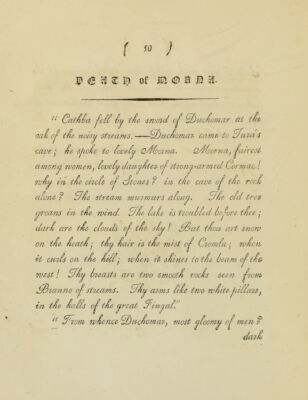 ( 10 )
DEATH of MORNA.
“ Cathba fell by the sword of Duchomar at the
oak of the noisy streams. — Duchomar came to Tura's
cave; he spoke to lovely Morna. Morna, fairest
among women, lovely daughter of strong-armed Cormac!
why in the circle of Stones? in the cave of the rock
alone? The stream murmurs along. The old tree
groans in the wind. The lake is troubled before thee;
dark are the clouds of the sky! But thou art snow
on the heath; thy hair is the mist of Cromla; when
it curls on the hill; when it shines to the beam of the
west! Thy breasts are two smooth rocks seen from
Branno of streams. Thy arms like two white pillars,
in the halls of the great Fingal.”
“ From whence Duchomar, most gloomy of men?
dark